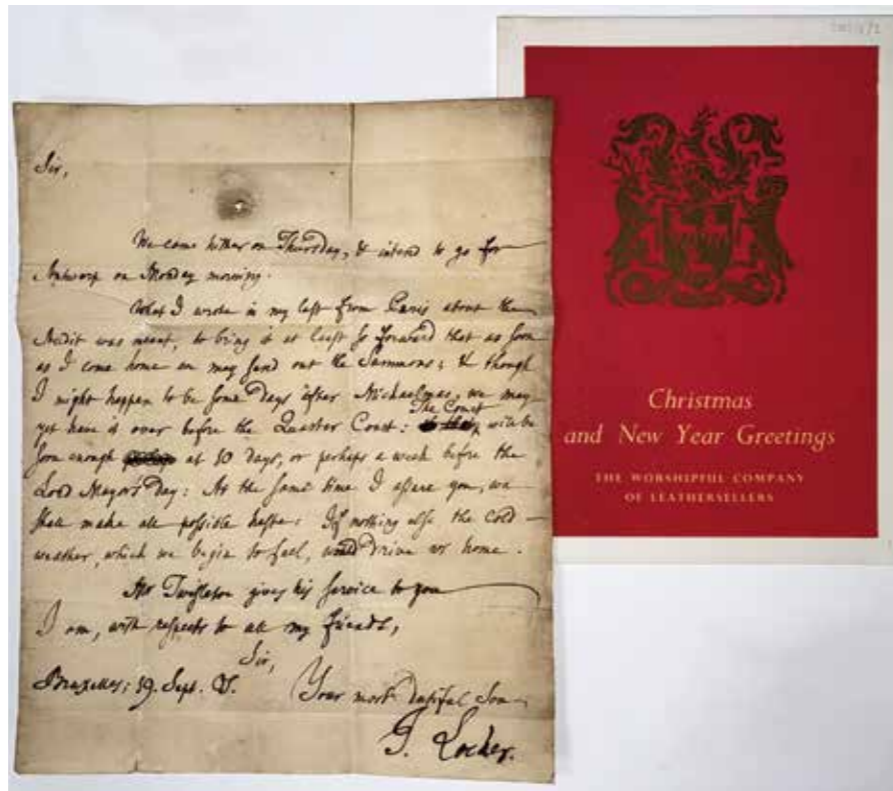 Sir,
We came hither on Thursday, & intend to go for
Antwerp on Monday morning.
What I wrote in my last from Paris about the
Audit was meant, to bring it at least so forward that as soon
as I come home we may send out the Summons; & though
I might happen to be some Days after Michaelmas, we may
yet have it over before the Quarter Court:
The Court
will be
soon enough at 10 days, or perhaps a week before the
Lord Mayor's Day: At the same time I assure you, we
shall make all possible haste: If nothing else the cold
weather, which we begin to feel, would drive us home.
Mr Twisleton gives his service to you
I am, with respects to all my friends,
Sir,
Bruxelles; 19. Sept.
Your most dutiful Son
J. Locker.
Christmas
and New Year Greetings
THE WORSHIPFUL COMPANY
OF LEATHERSELLERS